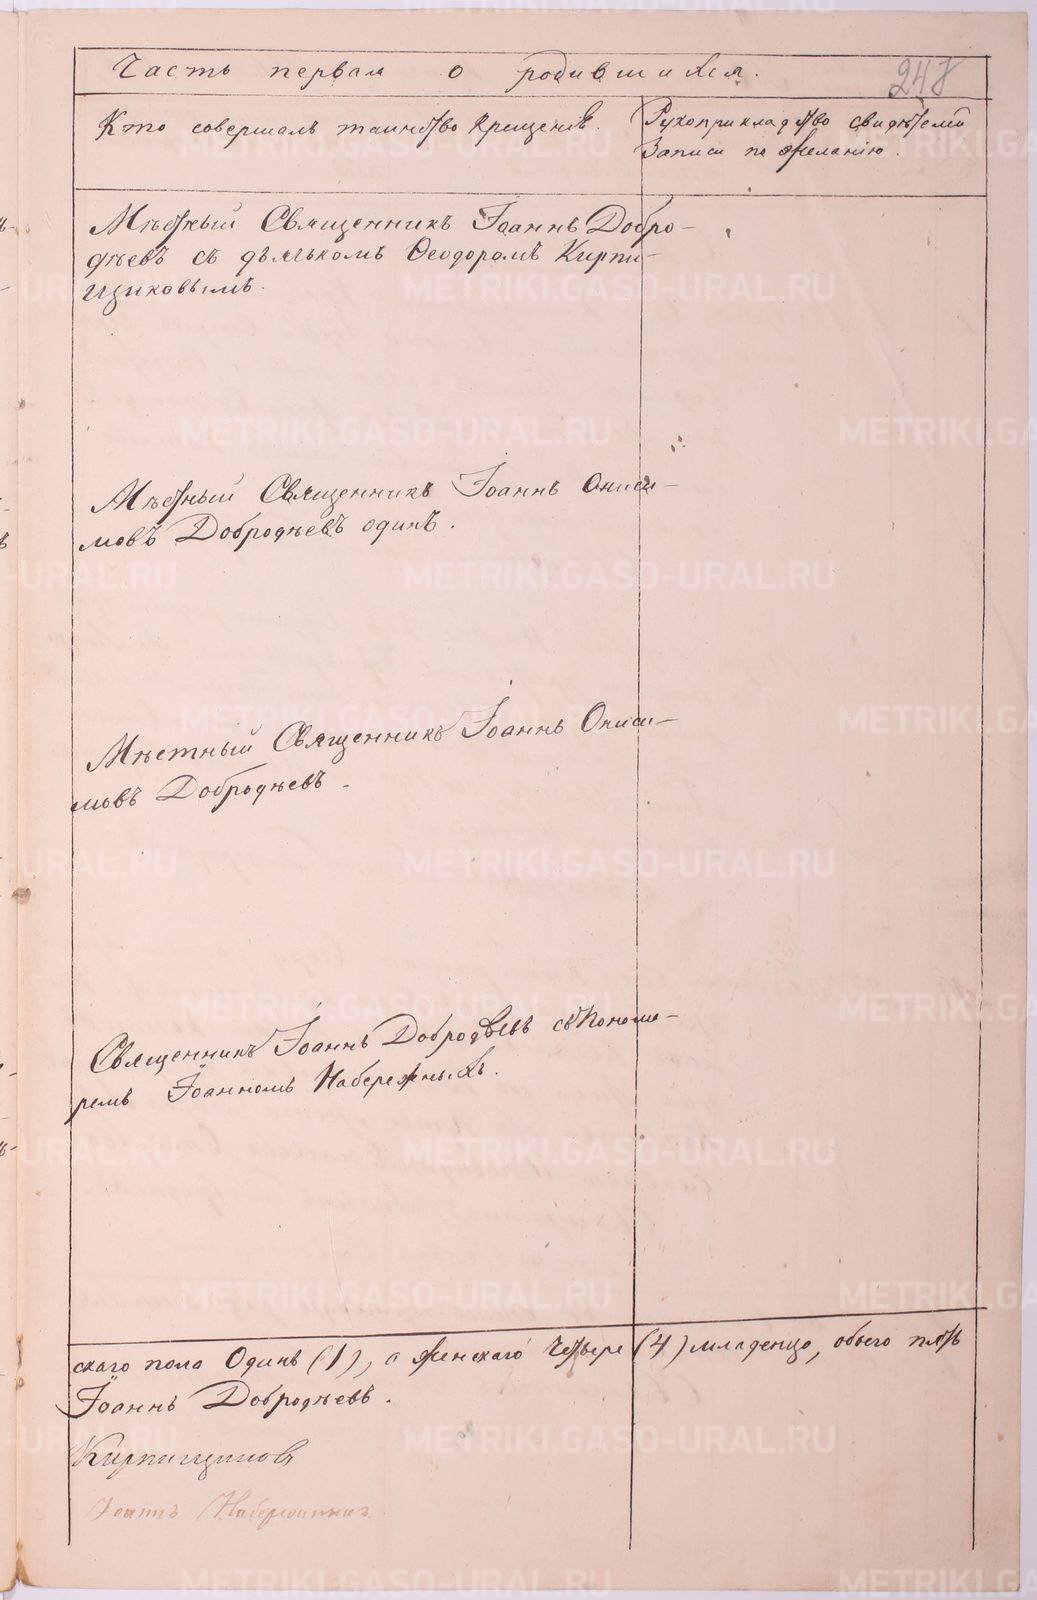 Часть первая о родившихся.
248
Кто совершалъ таинство крещенія.
Рукоприкладство свидѣтелей
Записи по желанію.
Мѣстный Священникъ Іоаннъ Добро-
дѣевъ съ дьячкомъ Ѳеодоромъ Кирпи-
щиковымъ.
Мѣстный Священникъ Іоаннъ Ониси-
мовъ Добродѣевъ одинъ.
Мѣстный Священникъ Іоаннъ Ониси-
мовъ Добродѣевъ.
Священникъ Іоаннъ Добродѣевъ съ Понома-
ремъ Іоанномъ Набережныхъ.
скаго пола Одинъ (1), а женскаго Четверо (4) младенца, обоего пять
Іоаннъ Добродѣевъ.
Кирпищиковъ
Іоаннъ Набережныхъ
METRIKI.GASO-URAL.RU